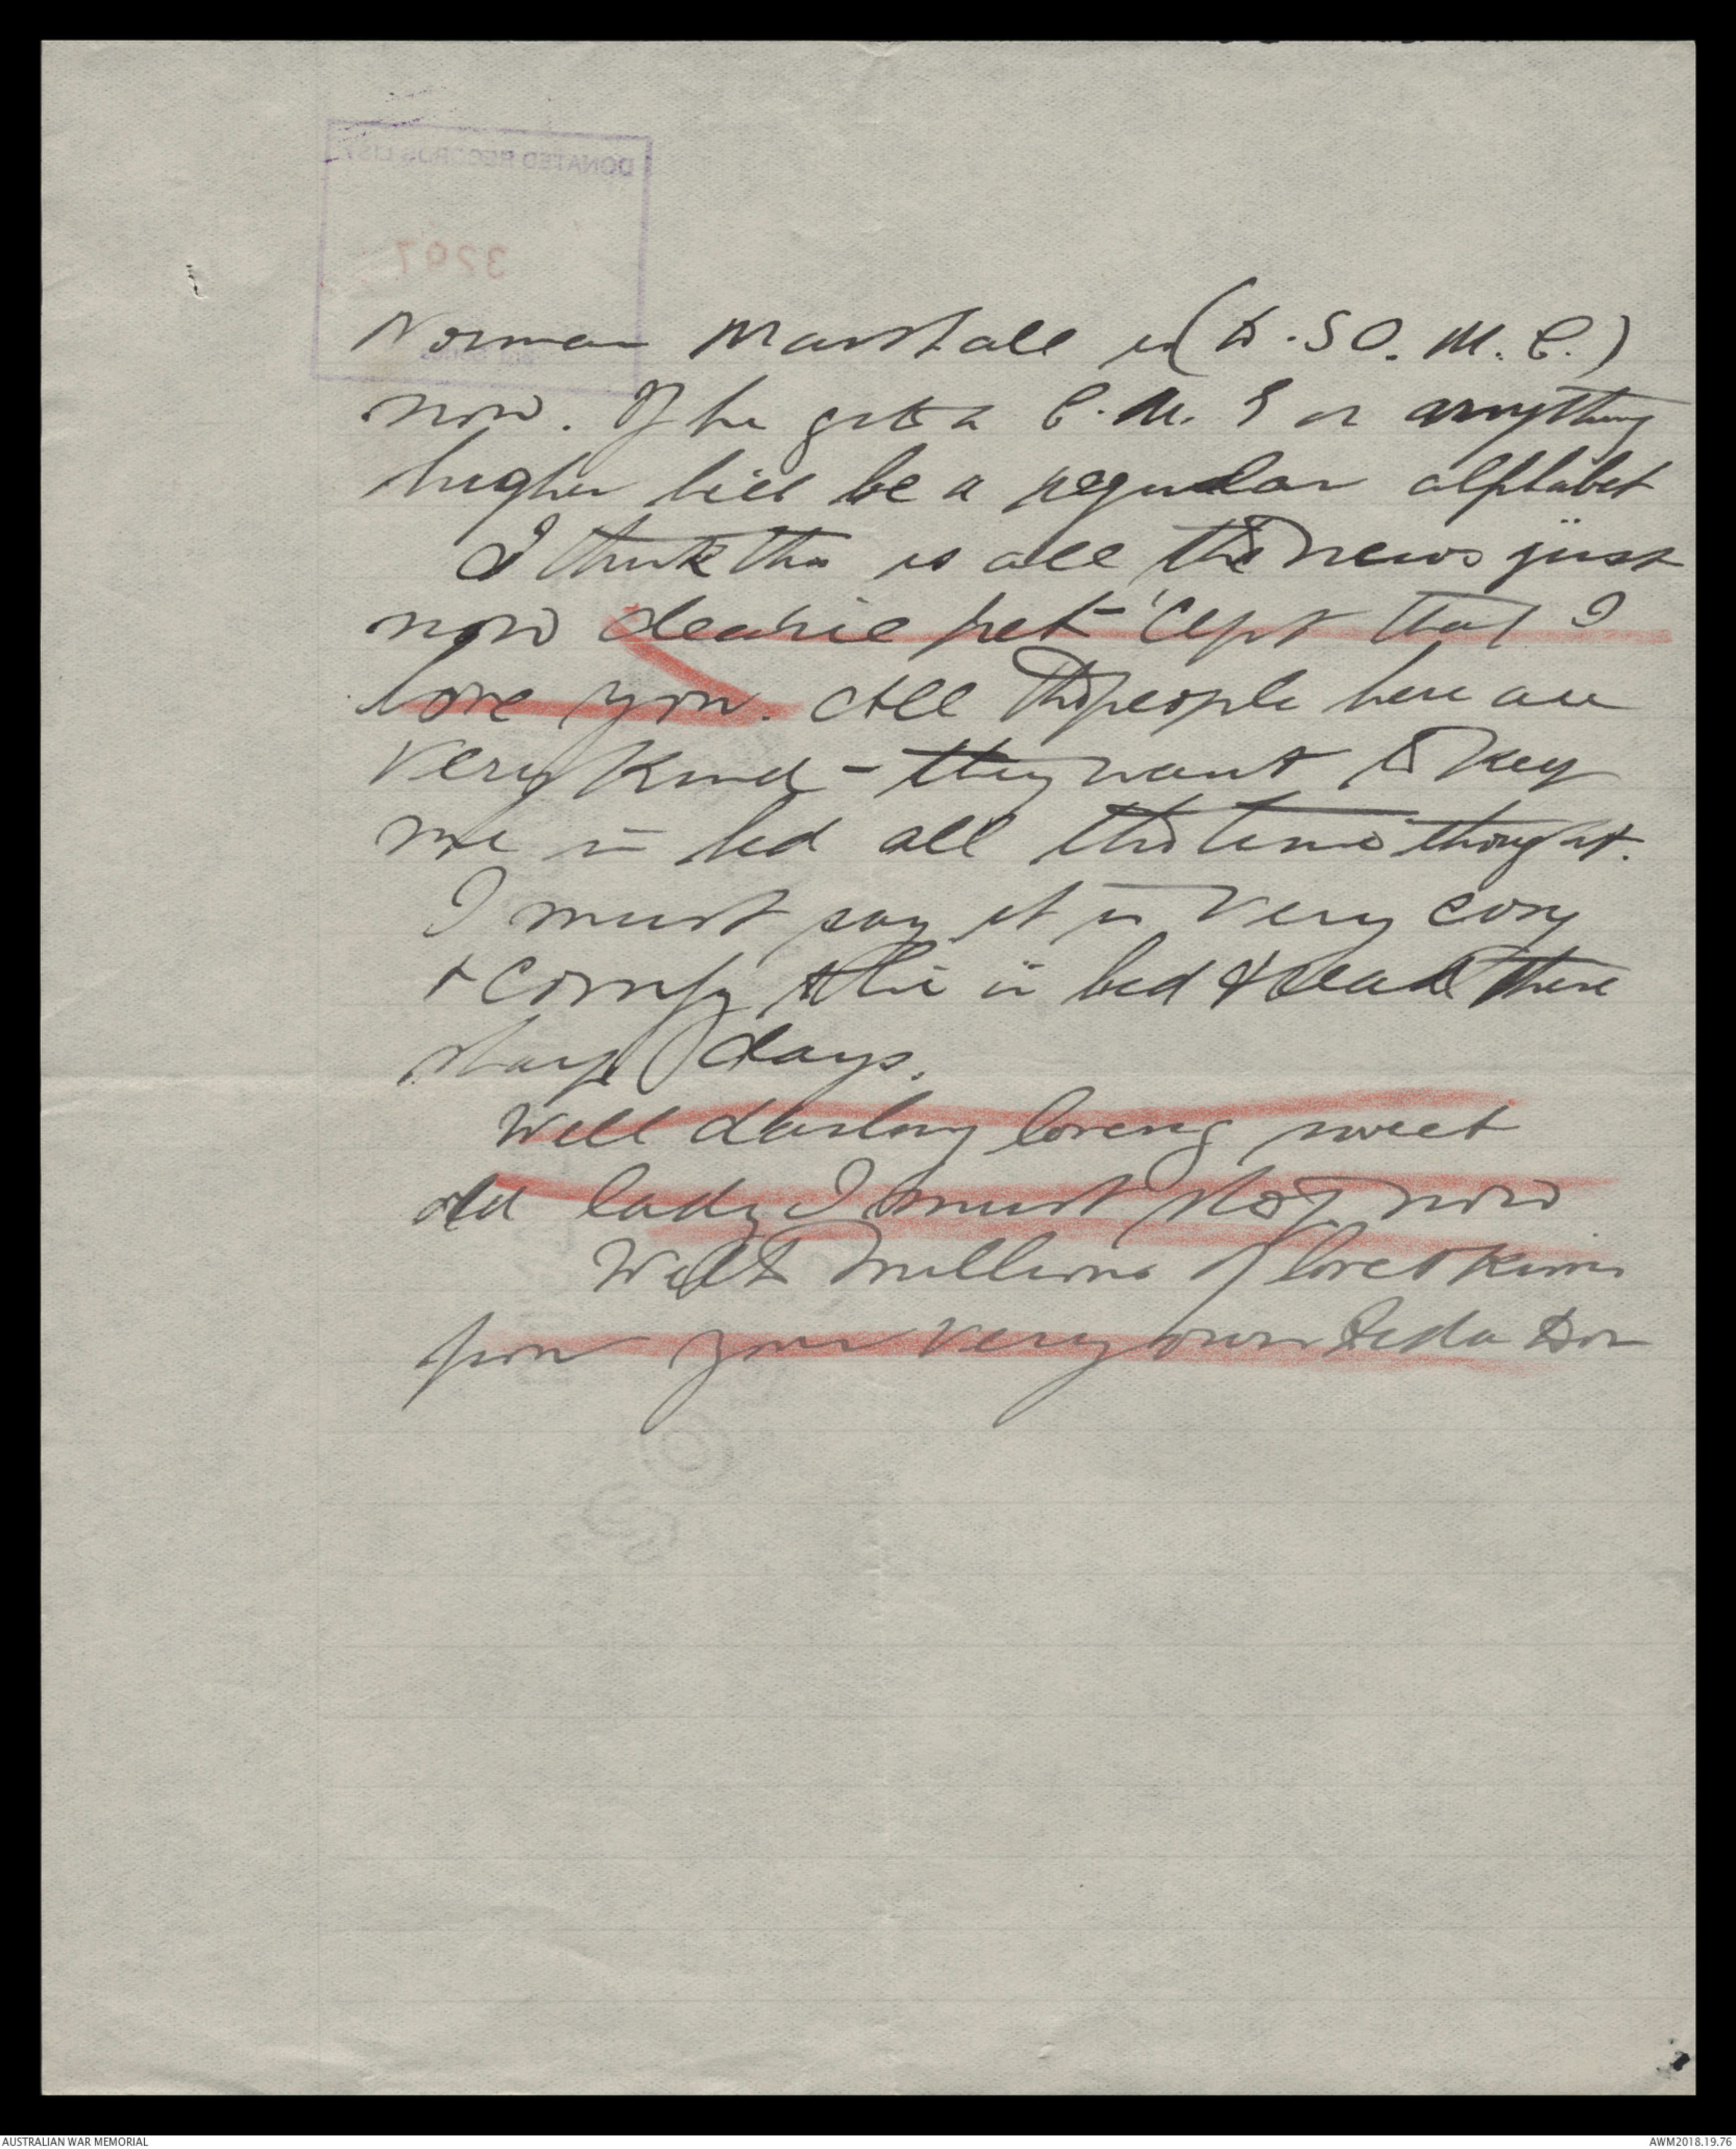 Norman Marshall is (D.S.O. M.C.)
now. If he gets a C.M.G or anything
higher he'll be a regular alphabet
I think this is all the news just
now dearie pet 'cept that I
love you. All the people here are
very kind - they want to keep
me in bed all the time though.
I must say it is very cosy
+ comfy in bed + read these
days.
Well darling loving sweet
old lady I must stop now
With millions of love + kisses
from your very own Don
DONATED RECORDS LIST
3297
AUSTRALIAN WAR MEMORIAL
AWM2018.19.76